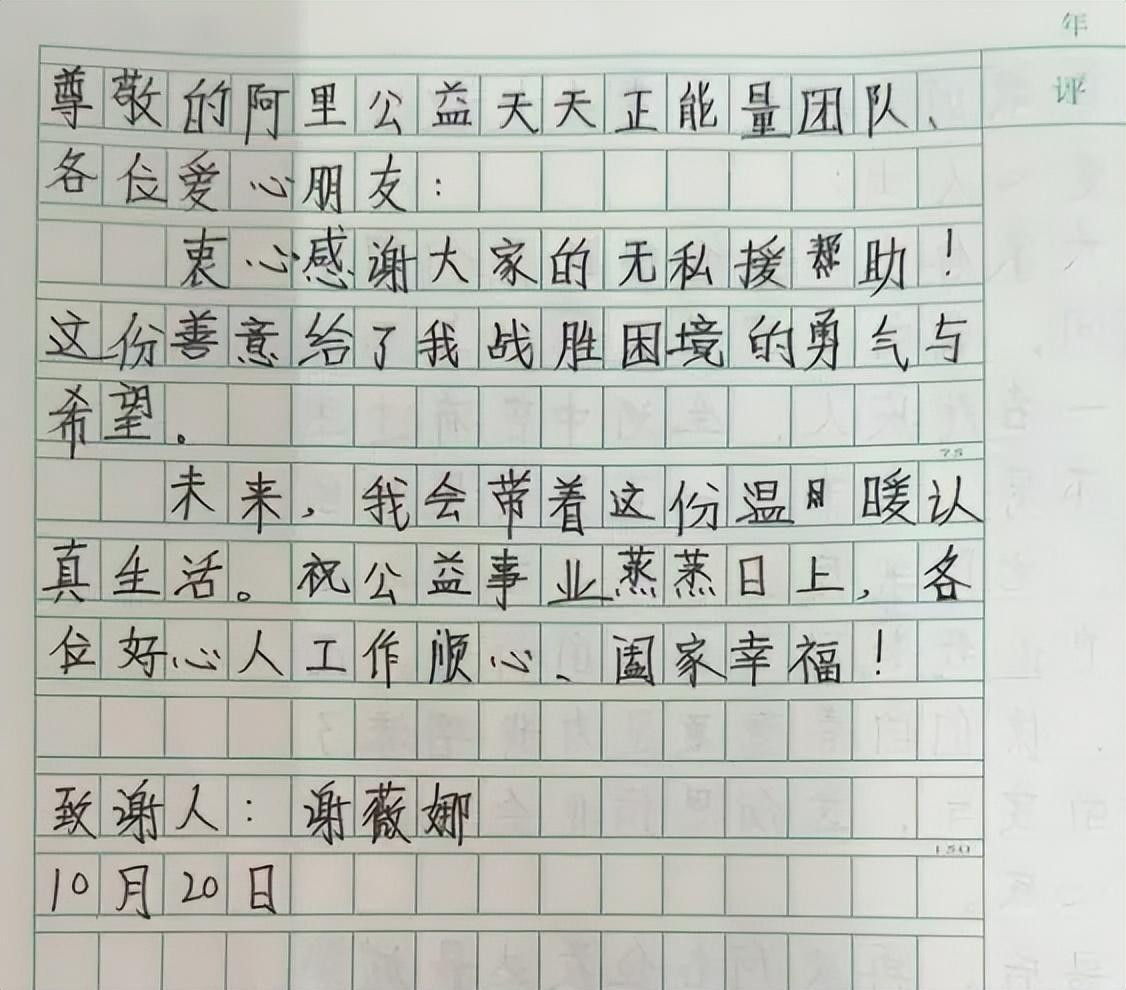 年
评
尊敬的阿里公益天天正能量团队、
各位爱心朋友：
衷心感谢大家的无私援帮助！
这份善意给了我战胜困境的勇气与
希望。
75
未来，我会带着这份温暖认
真生活。祝公益事业蒸蒸日上，各
位好心人工作顺心、阖家幸福！
致谢人：谢薇娜
150
10月20日